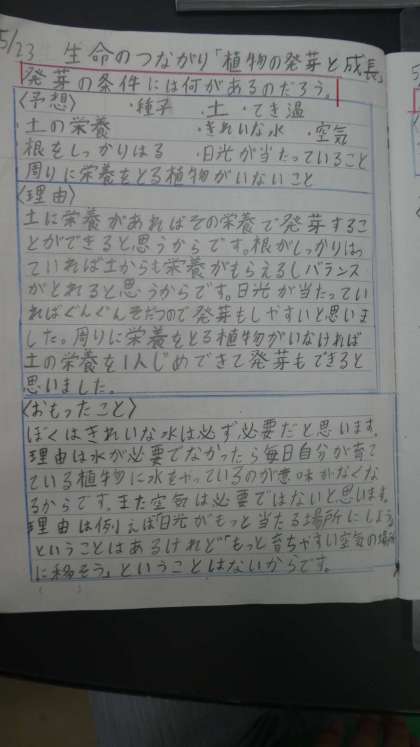 5/23 生命のつながり「植物の発芽と成長」
発芽の条件には何があるのだろう。
〈予想〉 ・種子 ・土 ・てき温
・土の栄養 ・きれいな水 ・空気
根をしっかりはる ・日光が当たっていること
周りに栄養をとる植物がいないこと
〈理由〉
土に栄養があればその栄養で発芽するこ
とができると思うからです。根がしっかりはっ
ていれば土からも栄養がもらえるしバランス
がとれると思うからです。日光が当たってい
ればぐんぐんそだつので発芽もしやすいと思いま
した。周りに栄養をとる植物がいなければ
土の栄養を1人じめできて発芽もできると
思いました。
〈おもったこと〉
ぼくはきれいな水は必ず必要だと思います。
理由は水が必要でなかったら毎日自分が育て
ている植物に水をやっているのが意味がなくな
るからです。また空気は必要ではないと思います。
理由は例えば「日光がもっと当たる場所にしよう」
ということはあるけれど「もっと育ちやすい空気の場所
に移そう」ということはないからです。